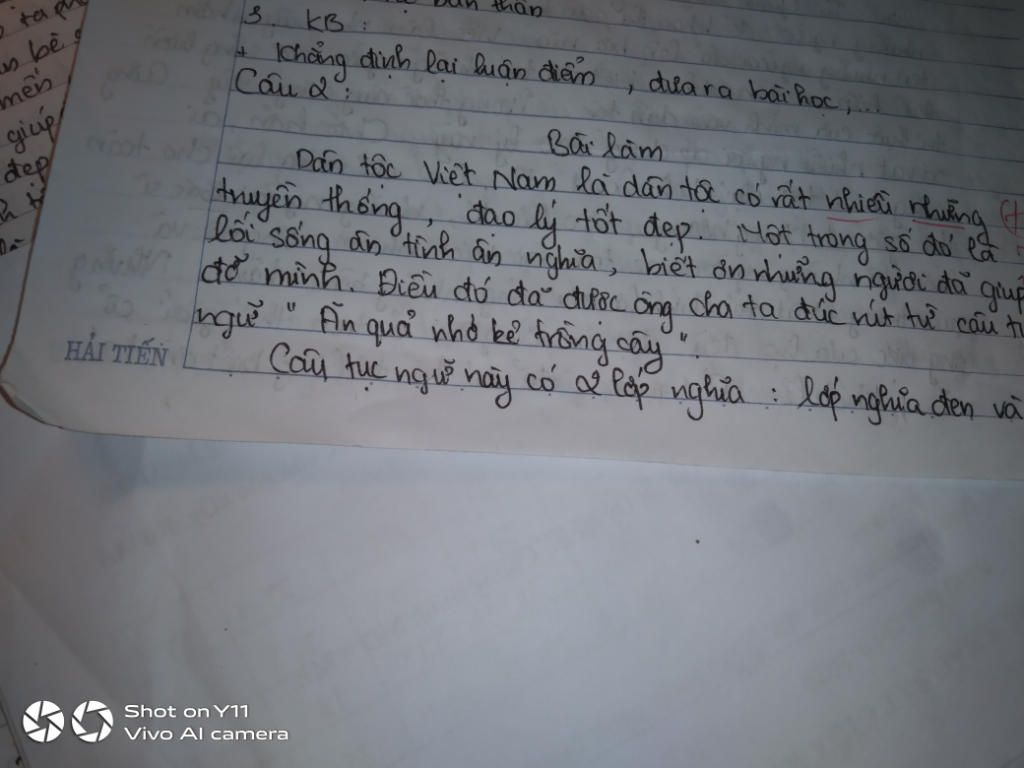 ta ph
bản thân
n bè
mến
giúp
đẹp
3. KB:
+ Khẳng định lại luận điểm, đưa ra bài học,...
Câu 2:
Bài làm
Dân tộc Việt Nam là dân tộc có rất nhiều những
truyền thống, đạo lý tốt đẹp. Một trong số đó là
lối sống ân tình ân nghĩa, biết ơn những người đã giúp
đỡ mình. Điều đó đã được ông cha ta đúc rút từ câu tu
ngữ "Ăn quả nhớ kẻ trồng cây".
Câu tục ngữ này có 2 lớp nghĩa: lớp nghĩa đen và
HẢI TIẾN
Shot on Y11
Vivo AI camera